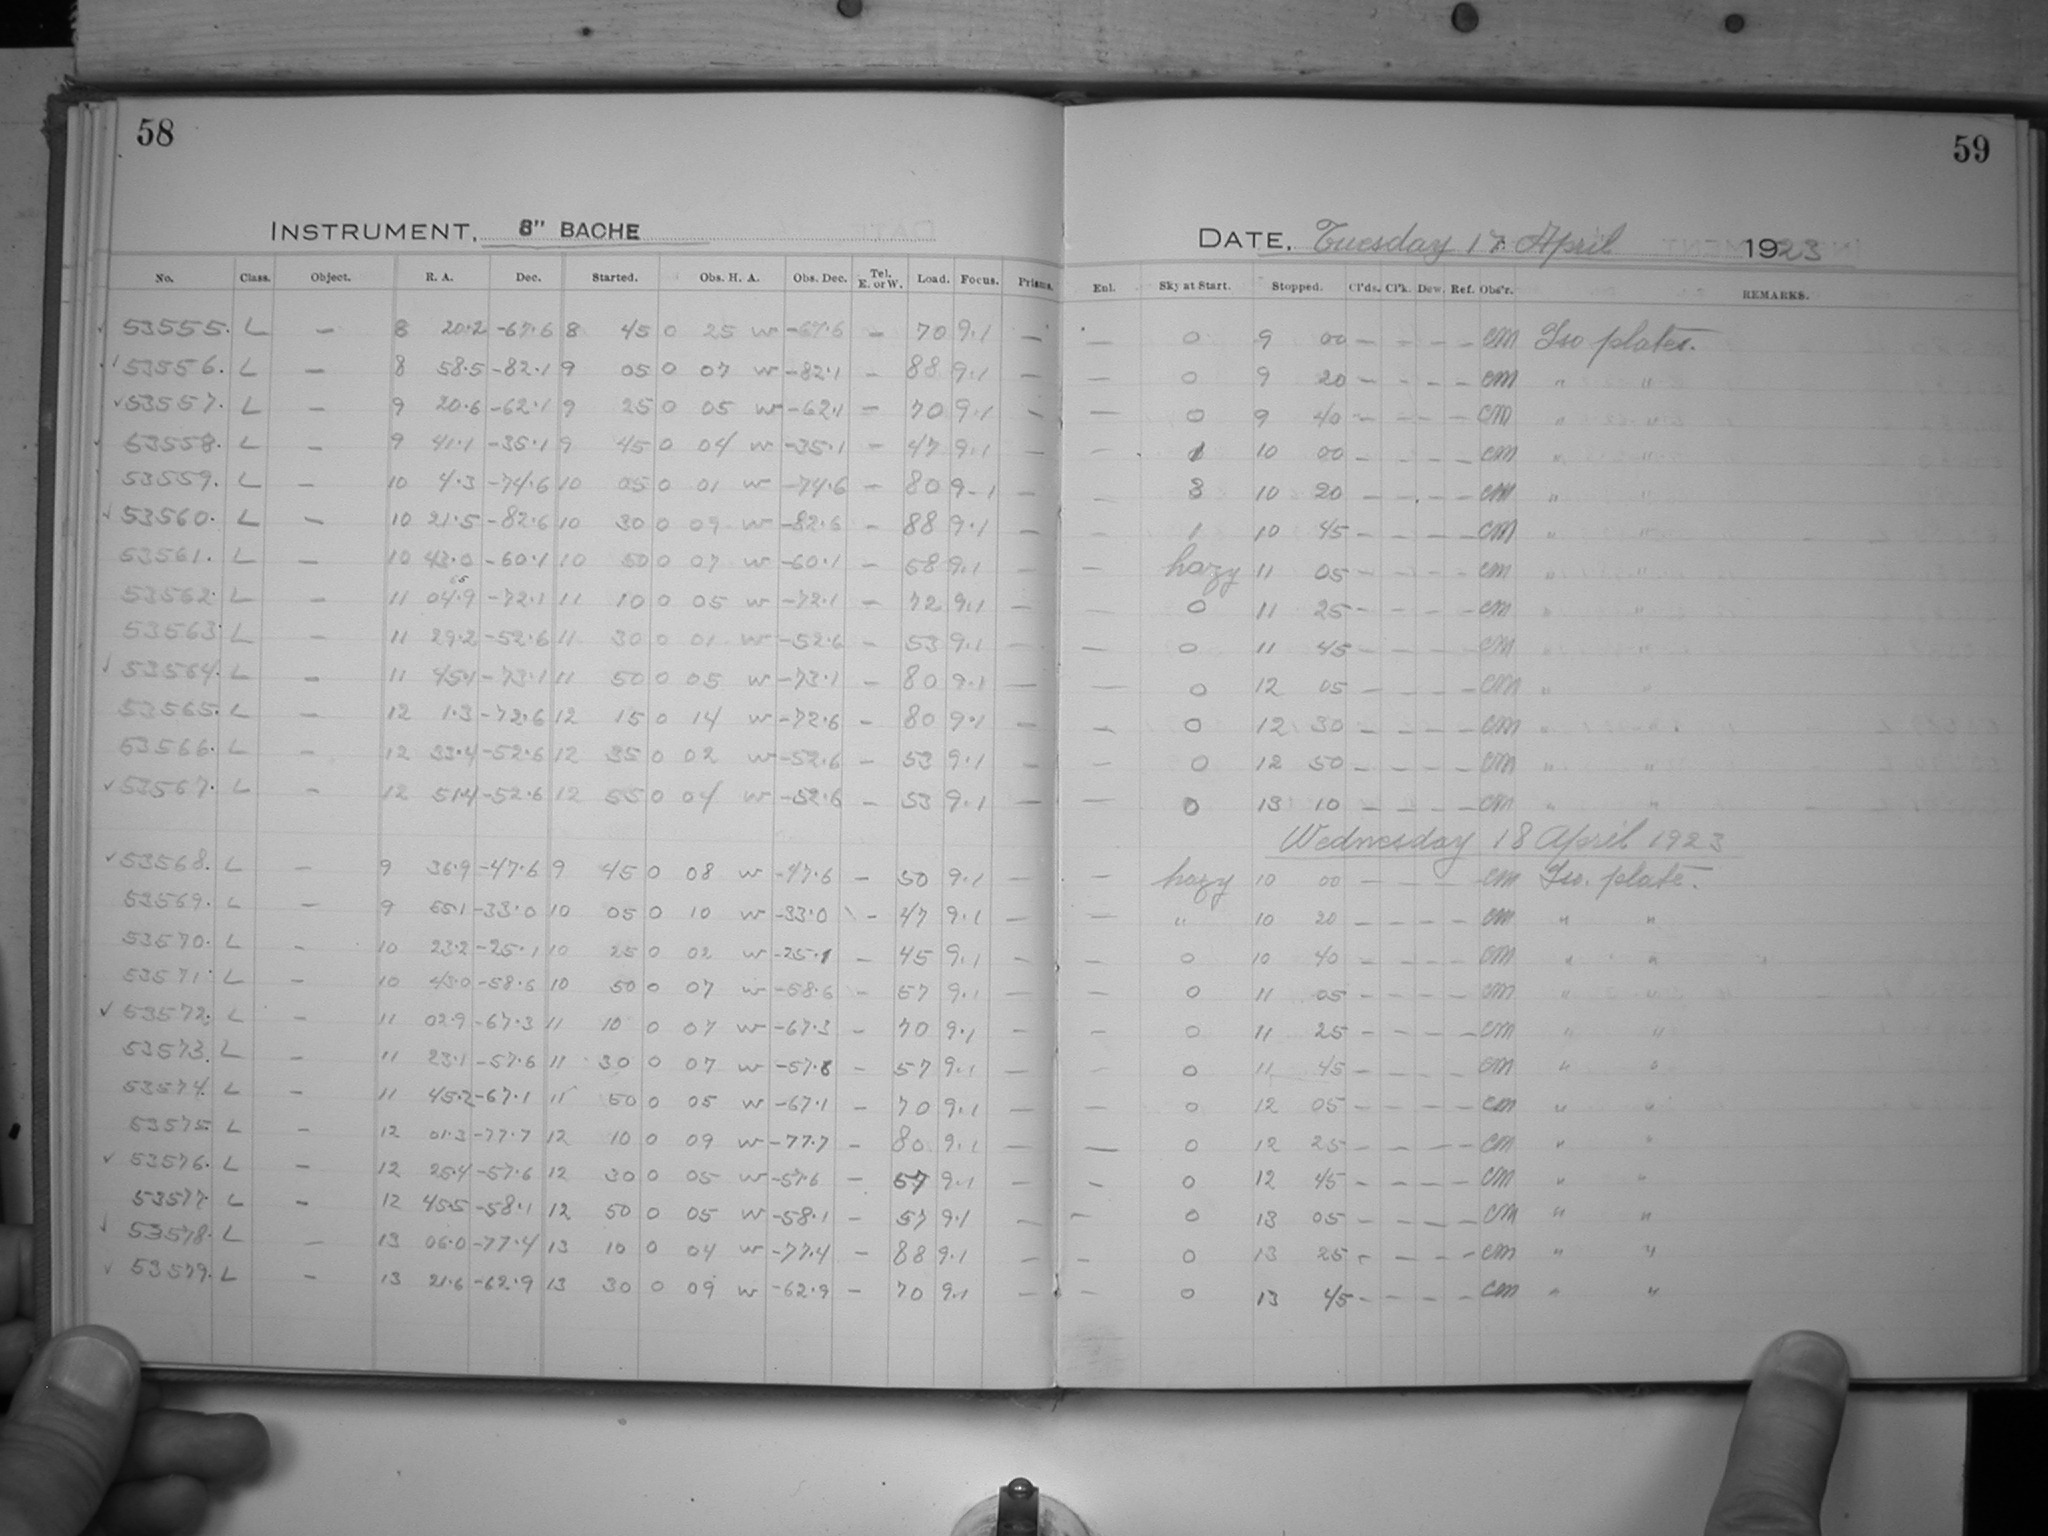 58
59
INSTRUMENT, 8" BACHE
DATE, Tuesday 17 April 1923
No. Class. Object. R. A. Dec. Started. Obs. H. A. Obs. Dec. Tel. E. or W. Load. Focus. Prisms. Enl. Sky at Start. Stopped. Cl'ds. Cl'k. Dew. Ref. Obs'r. REMARKS.
53555. L – 8 20.2 -67.6 8 45 0 25 w -67.6 – 70 9.1 – – 0 9 00 – – – – cm Iso plates.
53556. L – 8 58.5 -82.1 9 05 0 07 w -82.1 – 88 9.1 – – 0 9 20 – – – – cm " "
53557. L – 9 20.6 -62.1 9 25 0 05 w -62.1 – 70 9.1 – – 0 9 40 – – – – cm " "
53558. L – 9 41.1 -35.1 9 45 0 04 w -35.1 – 47 9.1 – – 1 10 00 – – – – cm " "
53559. L – 10 4.3 -74.6 10 05 0 01 w -74.6 – 80 9-1 – – 3 10 20 – – – – cm " "
53560. L – 10 21.5 -82.6 10 30 0 09 w -82.6 – 88 9.1 – – 1 10 45 – – – – cm " "
53561. L – 10 43.0 -60.1 10 50 0 07 w -60.1 – 58 9.1 – – hazy 11 05 – – – – cm " "
53562 L – 11 04.9 -72.1 11 10 0 05 w -72.1 – 72 9.1 – – 0 11 25 – – – – cm " "
53563 L – 11 29.2 -52.6 11 30 0 01 w -52.6 – 53 9.1 – – 0 11 45 – – – – cm " "
53564. L – 11 45.1 -73.1 11 50 0 05 w -73.1 – 80 9.1 – – 0 12 05 – – – – cm " "
53565. L – 12 1.3 -72.6 12 15 0 14 w -72.6 – 80 9.1 – – 0 12 30 – – – – cm " "
53566. L – 12 33.4 -52.6 12 35 0 02 w -52.6 – 53 9.1 – – 0 12 50 – – – – cm " "
53567. L – 12 51.4 -52.6 12 55 0 04 w -52.6 – 53 9.1 – – 0 13 10 – – – – cm " "
Wednesday 18 April 1923
53568. L – 9 36.9 -47.6 9 45 0 08 w -47.6 – 50 9.1 – – hazy 10 00 – – – – cm Iso. plate.
53569. L – 9 55.1 -33.0 10 05 0 10 w -33.0 – 47 9.1 – – " 10 20 – – – – cm " "
53570. L – 10 23.2 -25.1 10 25 0 02 w -25.1 – 45 9.1 – – 0 10 40 – – – – cm " "
53571. L – 10 43.0 -58.6 10 50 0 07 w -58.6 – 57 9.1 – – 0 11 05 – – – – cm " "
53572. L – 11 02.9 -67.3 11 10 0 07 w -67.3 – 70 9.1 – – 0 11 25 – – – – cm " "
53573. L – 11 23.1 -57.6 11 30 0 07 w -57.8 – 57 9.1 – – 0 11 45 – – – – cm " "
53574. L – 11 45.2 -67.1 11 50 0 05 w -67.1 – 70 9.1 – – 0 12 05 – – – – cm " "
53575 L – 12 01.3 -77.7 12 10 0 09 w -77.7 – 80 9.1 – – 0 12 25 – – – – cm " "
53576. L – 12 25.4 -57.6 12 30 0 05 w -57.6 – 57 9.1 – – 0 12 45 – – – – cm " "
53577 L – 12 45.5 -58.1 12 50 0 05 w -58.1 – 57 9.1 – – 0 13 05 – – – – cm " "
53578. L – 13 06.0 -77.4 13 10 0 04 w -77.4 – 88 9.1 – – 0 13 25 – – – – cm " "
53579. L – 13 21.6 -62.9 13 30 0 09 w -62.9 – 70 9.1 – – 0 13 45 – – – – cm " "